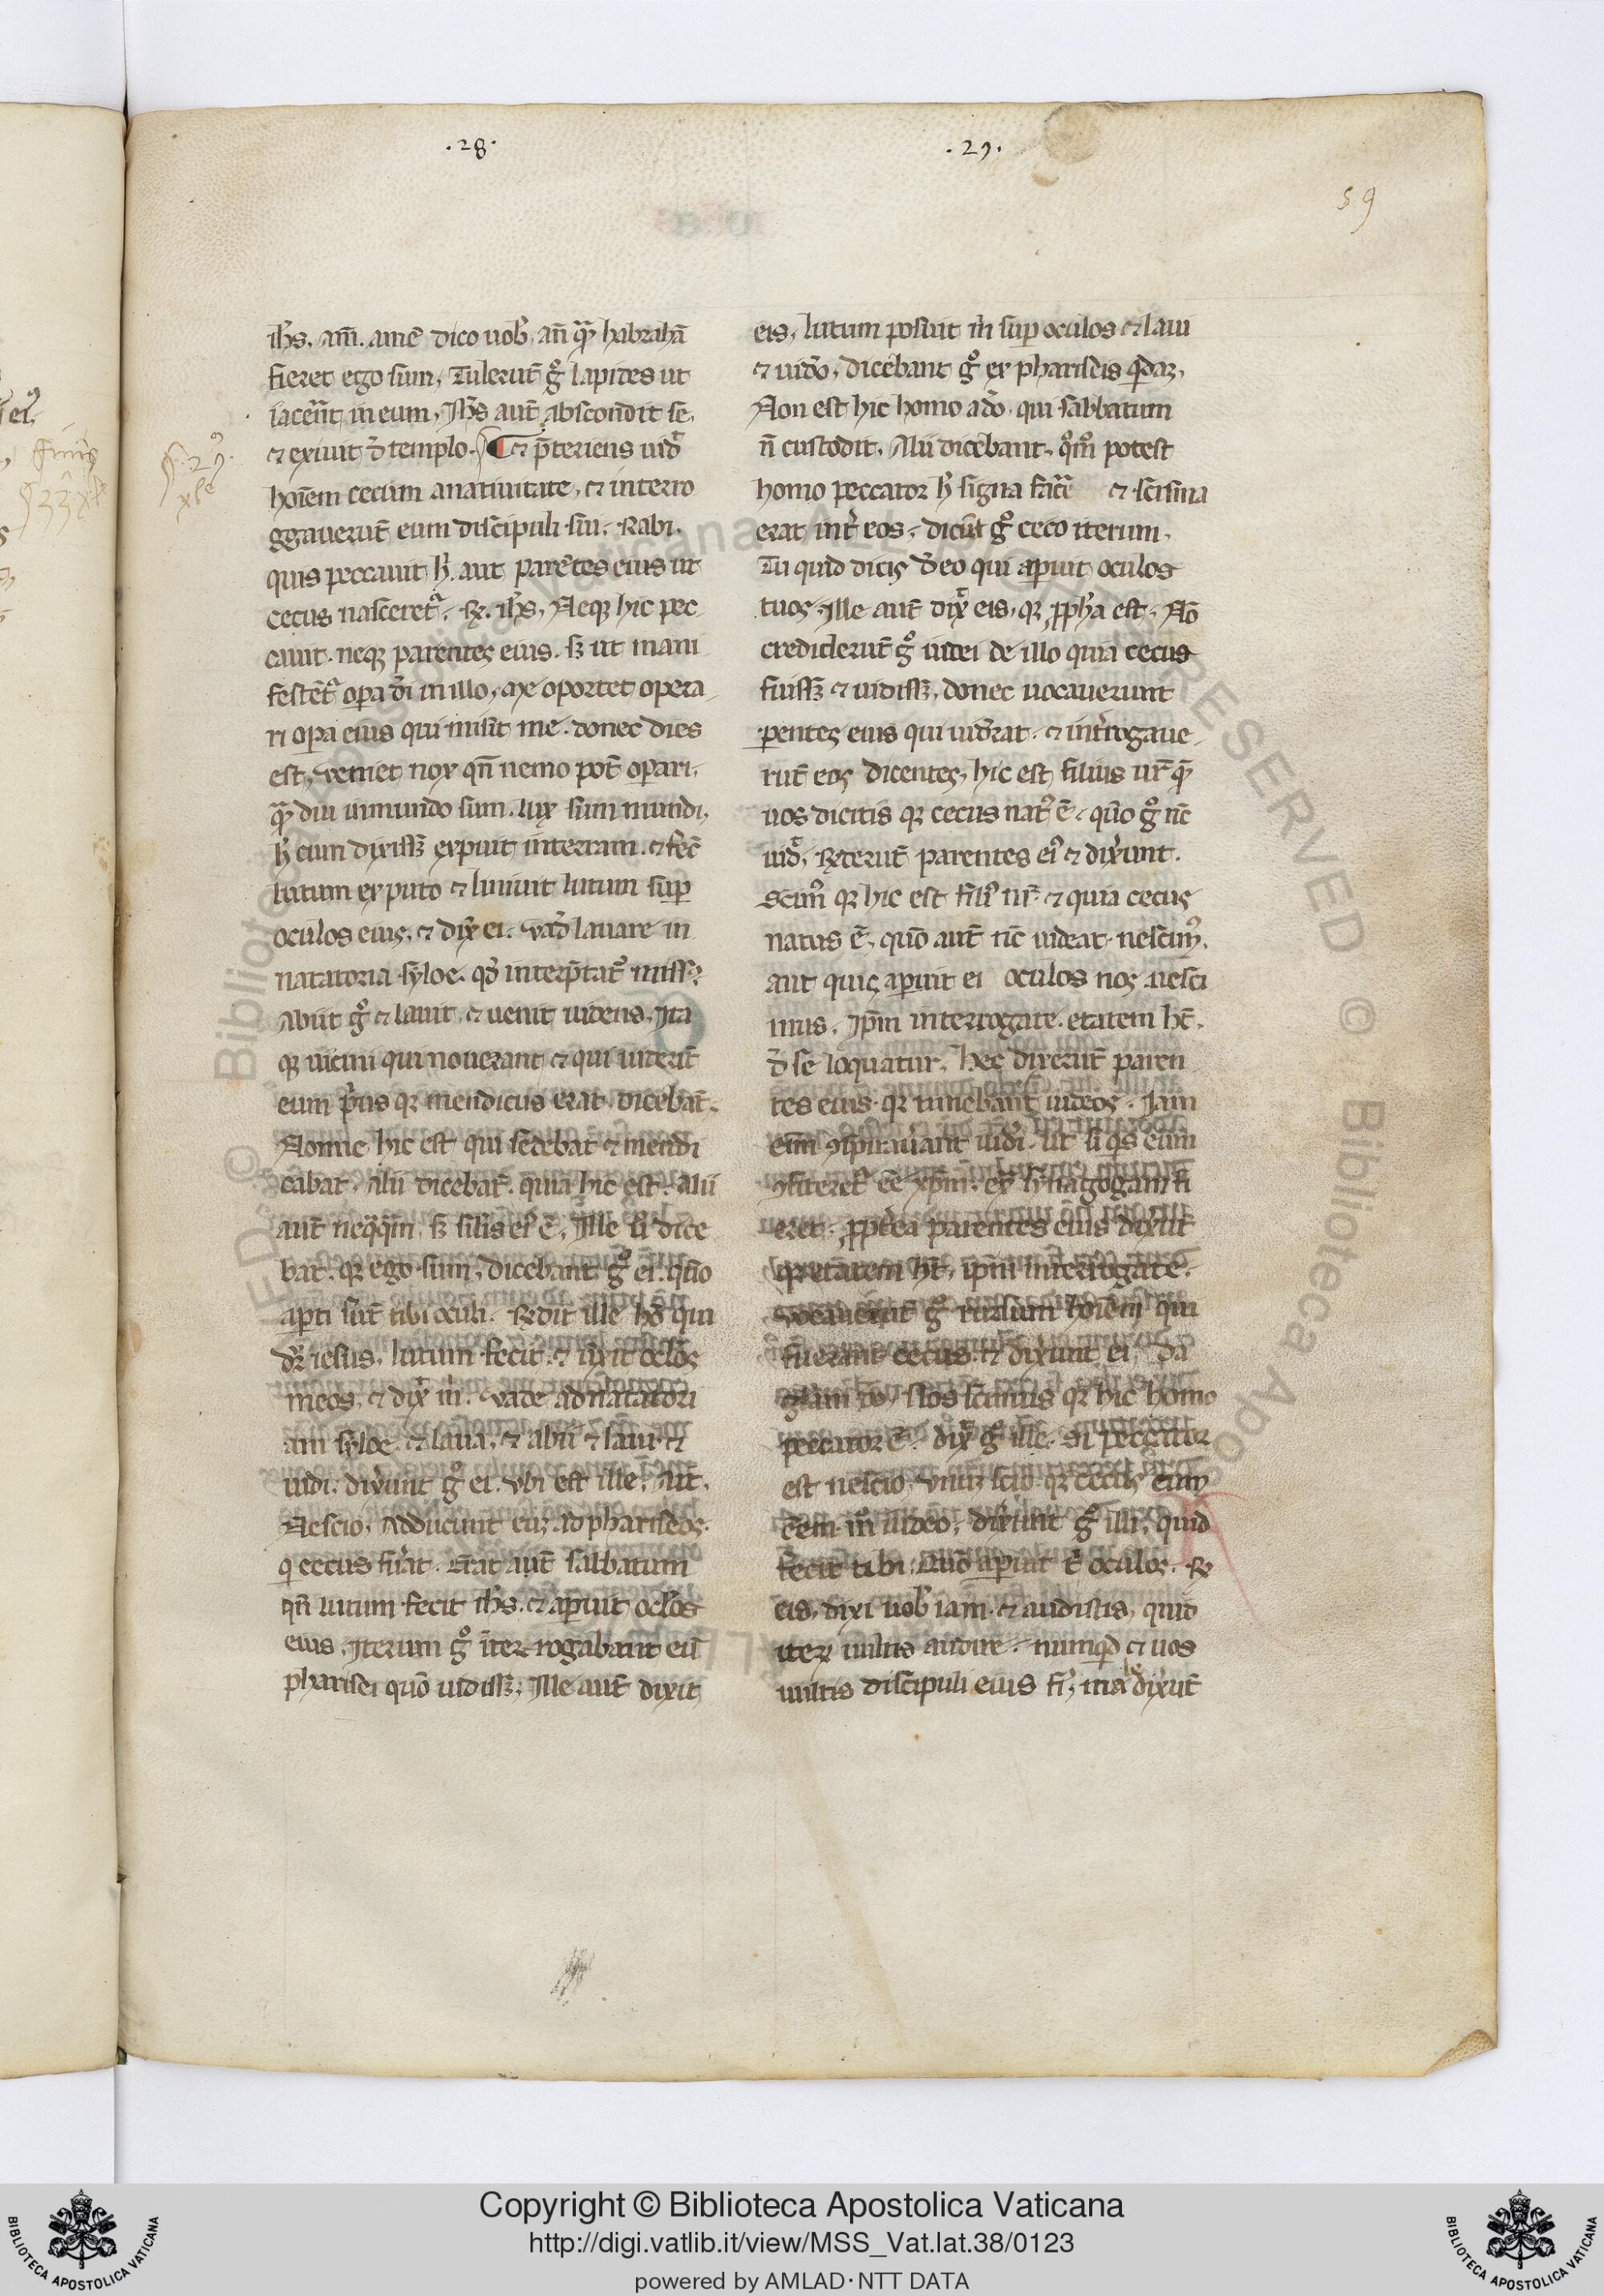 .28.
.29.
59
ih̅s. am̅. ame̅ dico uob̅. an̅ qua̅ habraha̅
fieret ego sum. Tuleru̅t gͦ lapides ut
iacere̅t in eum. Ih̅s aut̅ abscondit se.
⁊ exiuit d̅ templo. ¶ ⁊ p̅teriens uid̅
hoi̅em cecum a natiuitate. ⁊ interro
ggaueru̅t eum discipuli sui. Rabi.
quis peccauit h̅. aut pare̅tes eius ut
cecus nasceret᷑. R̅. ih̅s. Neq; hic pec
cauit. neq; parentes eius. s; ut mani
feste̅t᷑ op̅a di̅ in illo. me oportet opera
ri op̅a eius qui misit me. donec dies
est. ueniet nox qn̅ nemo pot̅ op̅ari.
qua̅ diu in mundo sum. lux sum mundi.
h̅ cum dixiss; expuit in terram. ⁊ fec̅
lutum ex puto ⁊ liniuit lutum sup̅
oculos eius. ⁊ dix̅ ei. uad̅ lauare in
natatoria syloe. qd̅ interp̅tat᷑ miss᷑
Abiit gͦ ⁊ lauit. ⁊ uenit uidens. Ita
q; uicini qui nouerant ⁊ qui uideru̅t
eum p̅us q; mendicus erat. diceba̅t.
Nonne hic est qui sedebat ⁊ mendi
cabat. alii diceba̅t. quia hic est. alii
aut̅ neq̅q̅m. s; silis ei᷒ e̅. Ille u̅ dice
bat. q; ego sum. dicebant gͦ ei. quo̅
ap̅ti su̅t tibi oculi. R̅dit ille ho̅ qui
dr̅ iesus. lutum fecit. ⁊ u̅xit oclos
meos. ⁊ dix̅ m̅. uade ad natatori
am syloe. ⁊ laua. ⁊ abii ⁊ laui ⁊
uidi. dixu̅nt gͦ ei. ubi est ille. Ait.
Nescio. Adducunt eu; ad phariseos.
q cecus fu̅at. Erat aut̅ sabbatum
qn̅ lutum fecit ih̅s. ⁊ ap̅uit oclos
eius. Iterum gͦ i̅ter-rogabant eu̅
pharisei quo̅ uidiss;. Ille aut̅ dixit
eis. lutum posuit m̅ sup̅ oculos ⁊ laui
⁊ uid̅o. dicebant gͦ ex phariseis q̅da;.
Non est hic homo a d̅o. qui sabbatum
n̅ custodit. Alii dicebant. qͦm̅ potest
homo peccator h̅ signa face̅ ⁊ scisma
erat int̅ eos. dicu̅t gͦ ceco iterum.
Tu quid dicis d̅ eo qui ap̅uit oculos
tuos. Ille aut̅ dix̅ eis. q; p̅ph̅a est. No̅
crediderut̅ gͦ iudei de illo quia cecus
fuiss; ⁊ uidiss;. donec uocauerunt
p̅entes eius qui uid̅rat. ⁊ int̅rogaue
ru̅t eos dicentes. hic est filius ur̅ que̅
uos dicitis q; cecus nat᷒ e̅. quo̅ gͦ nc̅
uid̅. R̅deru̅t parentes ei᷒ ⁊ dixu̅nt.
Scim᷒ q; hic est fili᷒ nr̅ ⁊ quia cecus
natus e̅. quo̅ aut̅ nc̅ uideat. nescim᷒.
aut quis ap̅uit ei oculos nos nesci
mus. Ip̅m interrogate. etatem ht̅.
d̅ se loquatur. hec dixeru̅t paren
tes eius. q; timebant iudeos. Iam
eni̅m ꝯspirau̅ant iudi. ut si q̅s eum
ꝯfiteret᷑ ee̅ xp̅m. ex᷑ synagogam fi
eret. p̅pt̅ea parentes eius dixu̅t
q; etatem ht̅. ip̅m interrogate.
uocaueru̅t gͦ rursum hoi̅em qui
fuerant cecus. ⁊ dixu̅nt ei. da
gl̅am d̅o. Nos scimus q; hic homo
peccator e̅. dix̅ gͦ ille. Si peccator
est nescio. unu; scio. q; cecus cum
e̅em. m̅ uideo. dixu̅nt gͦ illi. quid
fecit tibi. Quo̅ ap̅uit t̅ oculos. R̅
eis. dixi uob̅ iam. ⁊ audistis. quid
iteꝝ uultis audire. numq̅d ⁊ uos
uultis discipuli eius fi̅. maledixu̅t
Copyright © Biblioteca Apostolica Vaticana
http://digi.vatlib.it/view/MSS_Vat.lat.38/0123
powered by AMLAD·NTT DATA